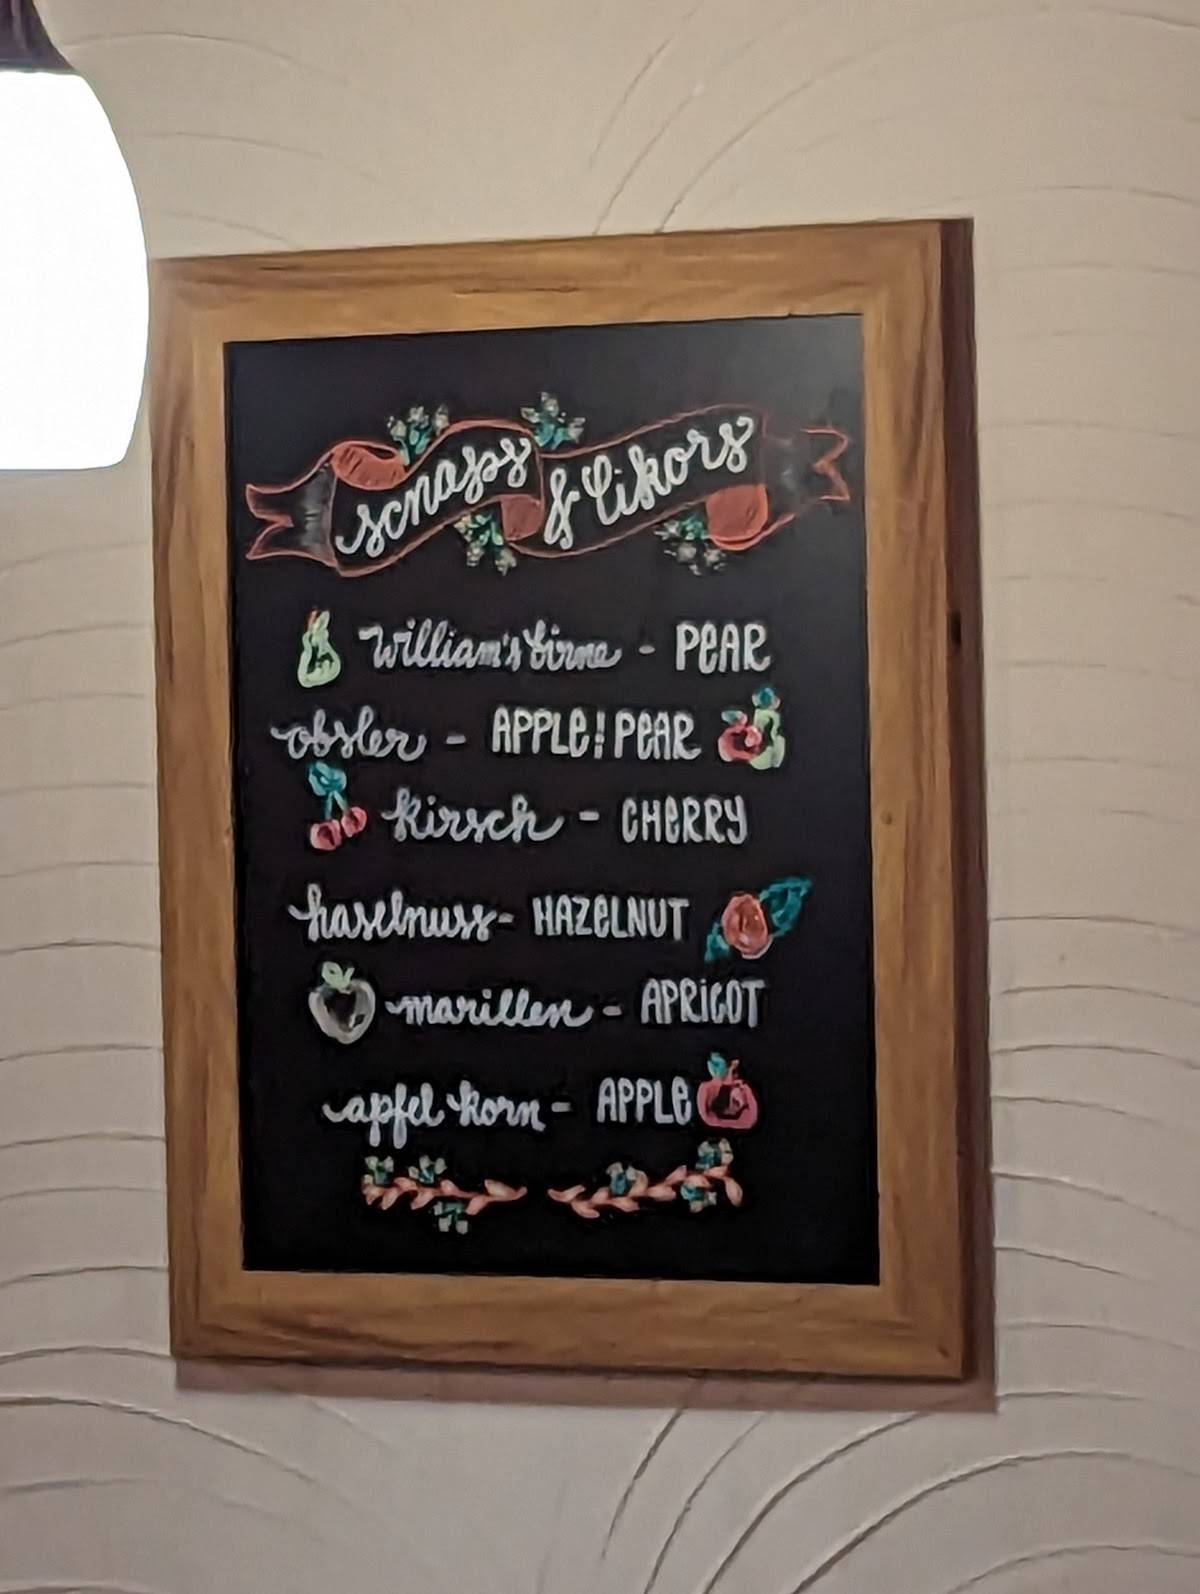 scnapps & Likors
William's birne - PEAR
obsler - APPLE & PEAR
kirsch - CHERRY
haselnuss - HAZELNUT
marillen - APRICOT
apfel korn - APPLE